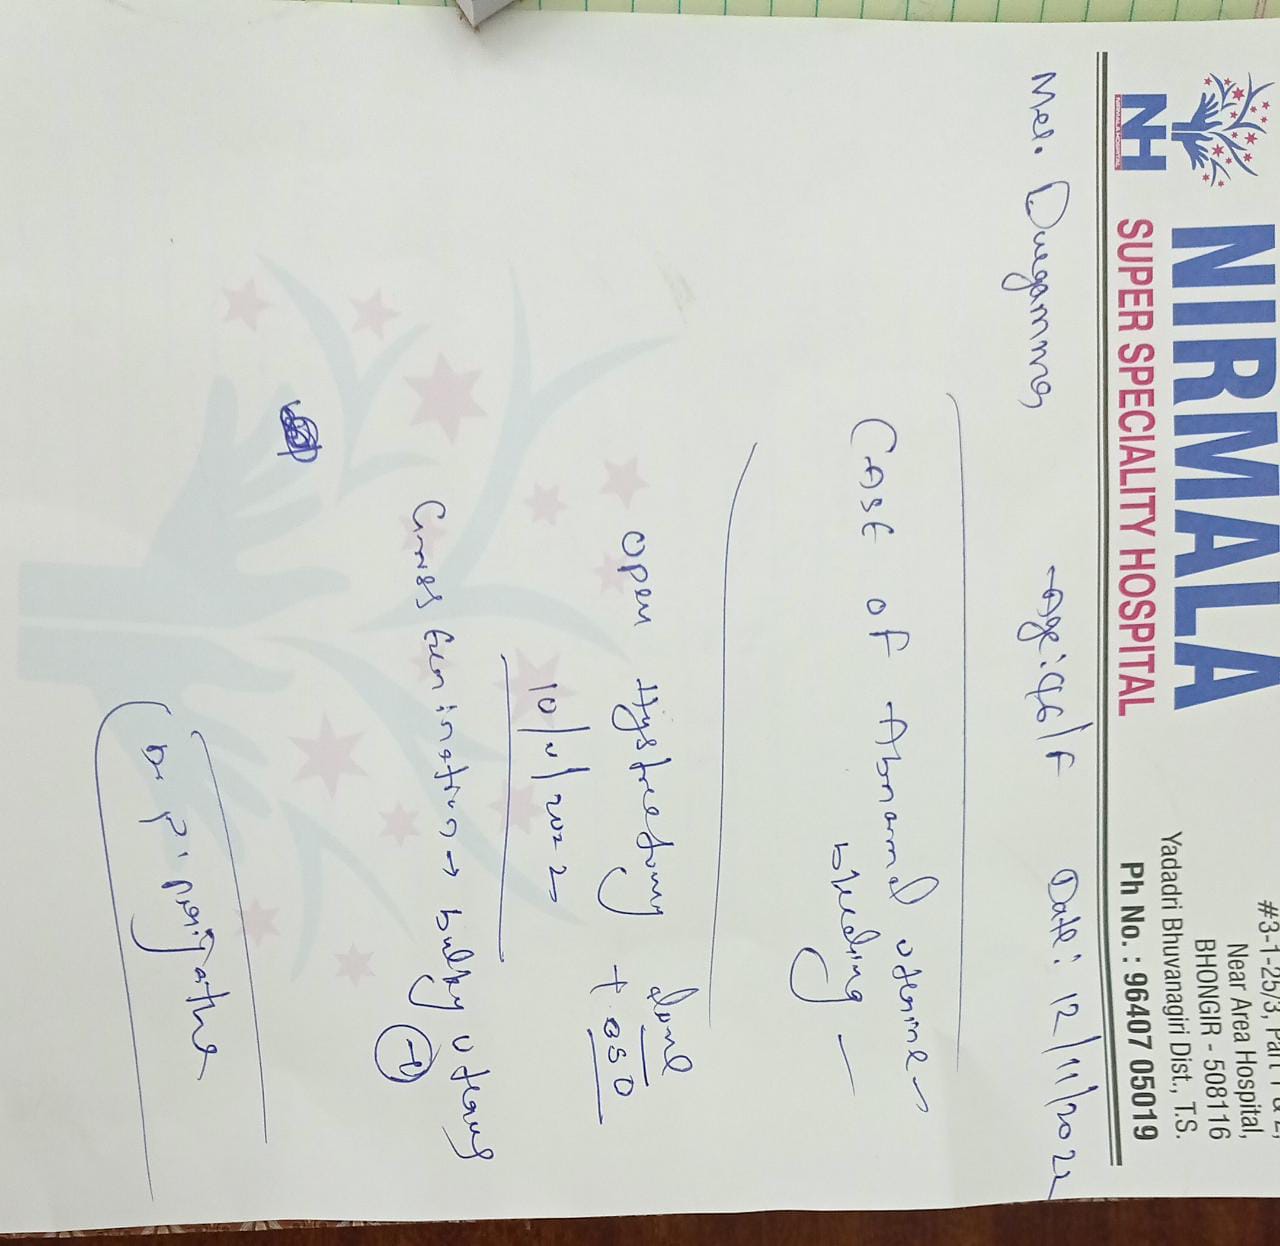 NIRMALA
SUPER SPECIALITY HOSPITAL
NH
NIRMALA HOSPITAL
#3-1-25/3, Part 1 & 2,
Near Area Hospital,
BHONGIR - 508116
Yadadri Bhuvanagiri Dist., T.S.
Ph No. : 96407 05019
Durgamma Age: 46/F Date: 12/11/2022
CASE OF Abnormal uterine
bleeding
open Hysterectomy done
+ BSO
Gross Examination → bulky uterus
Dr P.